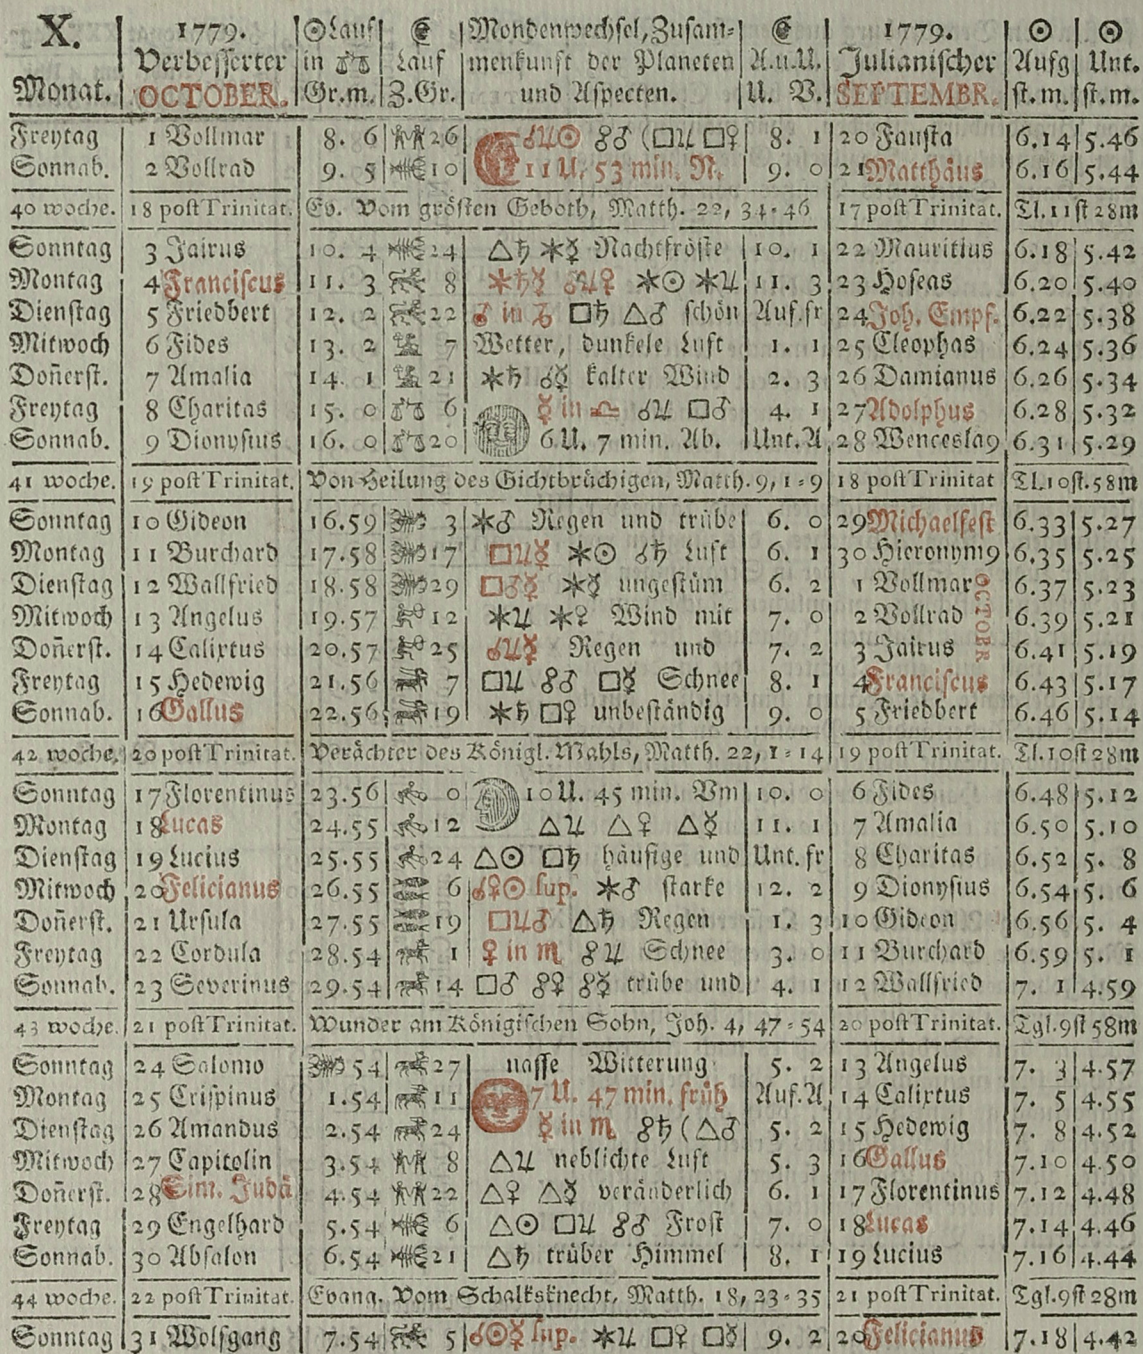 X. 1779. ☉Lauf ☾ Mondenwechsel, Zusam⸗ ☾ 1779. ☉ ☉
Verbesserter in ♎ Lauf menkunft der Planeten A.u.U. Julianischer Aufg Unt.
Monat. OCTOBER. Gr.m. Z.Gr. und Aspecten. U. V. SEPTEMBR. st.m. st.m.
Freytag 1 Vollmar 8. 6 ♊ 26 ☌♃☉ ☍♂ (□♃ □♀ 8. 1 20 Fausta 6.14 5.46
Sonnab. 2 Vollrad 9. 5 ♋ 10 11 U. 53 min. N. 9. 0 21 Matthäus 6.16 5.44
40 woche. 18 post Trinitat. Ev. Vom grösten Geboth, Matth. 22, 34-46 17 post Trinitat. Tl. 11st 28m
Sonntag 3 Jairus 10. 4 ♋ 24 △♄ ✶☿ Nachtfröste 10. 1 22 Mauritius 6.18 5.42
Montag 4 Franciscus 11. 3 ♌ 8 ✶♄☿ ☌♃♀ ✶☉ ✶♃ 11. 3 23 Hoseas 6.20 5.40
Dienstag 5 Friedbert 12. 2 ♌ 22 ♂ in ♑ □♄ △♂ schön Auf.fr 24 Joh. Empf. 6.22 5.38
Mitwoch 6 Fides 13. 2 ♍ 7 Wetter, dunkele Luft 1. 1 25 Cleophas 6.24 5.36
Doñerst. 7 Amalia 14. 1 ♍ 21 ✶♄ ☌☿ kalter Wind 2. 3 26 Damianus 6.26 5.34
Freytag 8 Charitas 15. 0 ♎ 6 ☿ in ♎ ☌♃ □♂ 4. 1 27 Adolphus 6.28 5.32
Sonnab. 9 Dionysius 16. 0 ♎ 20 6 U. 7 min. Ab. Unt.A 28 Wenceslag 6.31 5.29
41 woche. 19 post Trinitat. Von Heilung des Gichtbrüchigen, Matth. 9, 1-9 18 post Trinitat Tl. 10st. 58m
Sonntag 10 Gideon 16.59 ♏ 3 ✶♂ Regen und trübe 6. 0 29 Michaelfest 6.33 5.27
Montag 11 Burchard 17.58 ♏ 17 □♃☿ ✶☉ ☌♄ Luft 6. 1 30 Hieronymg 6.35 5.25
Dienstag 12 Wallfried 18.58 ♏ 29 □♂☿ ✶☿ ungestüm 6. 2 1 Vollmar OCTOBR 6.37 5.23
Mitwoch 13 Angelus 19.57 ♐ 12 ✶♃ ✶♀ Wind mit 7. 0 2 Vollrad 6.39 5.21
Doñerst. 14 Calixtus 20.57 ♐ 25 ☌♃☿ Regen und 7. 2 3 Jairus 6.41 5.19
Freytag 15 Hedewig 21.56 ♑ 7 □♃ ☍♂ □☿ Schnee 8. 1 4 Franciscus 6.43 5.17
Sonnab. 16 Gallus 22.56 ♑ 19 ✶♄ □♀ unbeständig 9. 0 5 Friedbert 6.46 5.14
42 woche. 20 post Trinitat. Verächter des Königl. Mahls, Matth. 22, 1-14 19 post Trinitat. Tl. 10st 28m
Sonntag 17 Florentinus 23.56 ♒ 0 10 U. 45 min. Vm 10. 0 6 Fides 6.48 5.12
Montag 18 Lucas 24.55 ♒ 12 △♃ △♀ △☿ 11. 1 7 Amalia 6.50 5.10
Dienstag 19 Lucius 25.55 ♒ 24 △☉ □♄ häufige und Unt.fr 8 Charitas 6.52 5. 8
Mitwoch 20 Felicianus 26.55 ♓ 6 ☌♀☉ sup. ✶♂ starke 12. 2 9 Dionysius 6.54 5. 6
Doñerst. 21 Ursula 27.55 ♓ 19 □♃♂ △♄ Regen 1. 3 10 Gideon 6.56 5. 4
Freytag 22 Cordula 28.54 ♈ 1 ♀ in ♏ ☍♃ Schnee 3. 0 11 Burchard 6.59 5. 1
Sonnab. 23 Severinus 29.54 ♈ 14 □♂ ☍♀ ☍☿ trübe und 4. 1 12 Wallfried 7. 1 4.59
43 woche. 21 post Trinitat. Wunder am Königischen Sohn, Joh. 4, 47-54 20 post Trinitat. Tgl. 9st 58m
Sonntag 24 Salomo ♏ 54 ♈ 27 nasse Witterung 5. 2 13 Angelus 7. 3 4.57
Montag 25 Crispinus 1.54 ♉ 11 7 U. 47 min. früh Auf.A 14 Calixtus 7. 5 4.55
Dienstag 26 Amandus 2.54 ♉ 24 ☿ in ♏ ☍♄ (△♂ 5. 2 15 Hedewig 7. 8 4.52
Mitwoch 27 Capitolin 3.54 ♊ 8 △♃ neblichte Luft 5. 3 16 Gallus 7.10 4.50
Doñerst. 28 Sim. Judä 4.54 ♊ 22 △♀ △☿ veränderlich 6. 1 17 Florentinus 7.12 4.48
Freytag 29 Engelhard 5.54 ♋ 6 △☉ □♃ ☍♂ Frost 7. 0 18 Lucas 7.14 4.46
Sonnab. 30 Absalon 6.54 ♋ 21 △♄ trüber Himmel 8. 1 19 Lucius 7.16 4.44
44 woche. 22 post Trinitat. Evang. Vom Schalksknecht, Matth. 18, 23-35 21 post Trinitat. Tgl. 9st 28m
Sonntag 31 Wolfgang 7.54 ♌ 5 ☌☉☿ sup. ✶♃ □♀ □☿ 9. 2 20 Felicianus 7.18 4.42